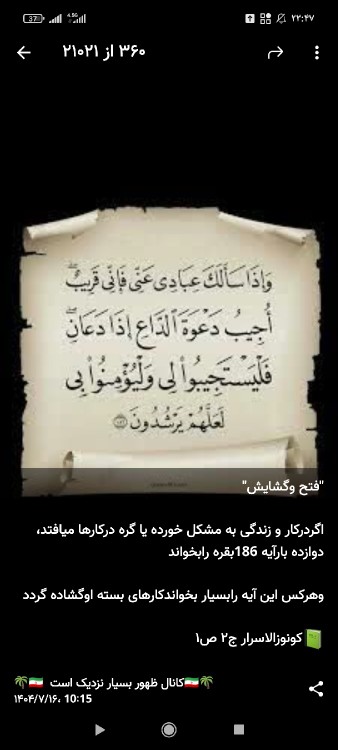 37
4.5G
۲۲:۴۷
۳۶۰ از ۲۱۰۲۱
وَإِذَا سَأَلَكَ عِبَادِي عَنِّي فَإِنِّي قَرِيبٌ ۖ
أُجِيبُ دَعْوَةَ ٱلدَّاعِ إِذَا دَعَانِ ۖ
فَلْيَسْتَجِيبُوا۟ لِي وَلْيُؤْمِنُوا۟ بِي
لَعَلَّهُمْ يَرْشُدُونَ
"فتح وگشایش"
اگردرکار و زندگی به مشکل خورده یا گره درکارها میافتد،
دوازده بارآیه 186بقره رابخواند
وهرکس این آیه رابسیار بخواندکارهای بسته اوگشاده گردد
📗کونوزالاسرار ج۲ ص۱
🌴🇮🇷کانال ظهور بسیار نزدیک است 🇮🇷🌴
۱۴۰۴/۷/۱۶، 10:15